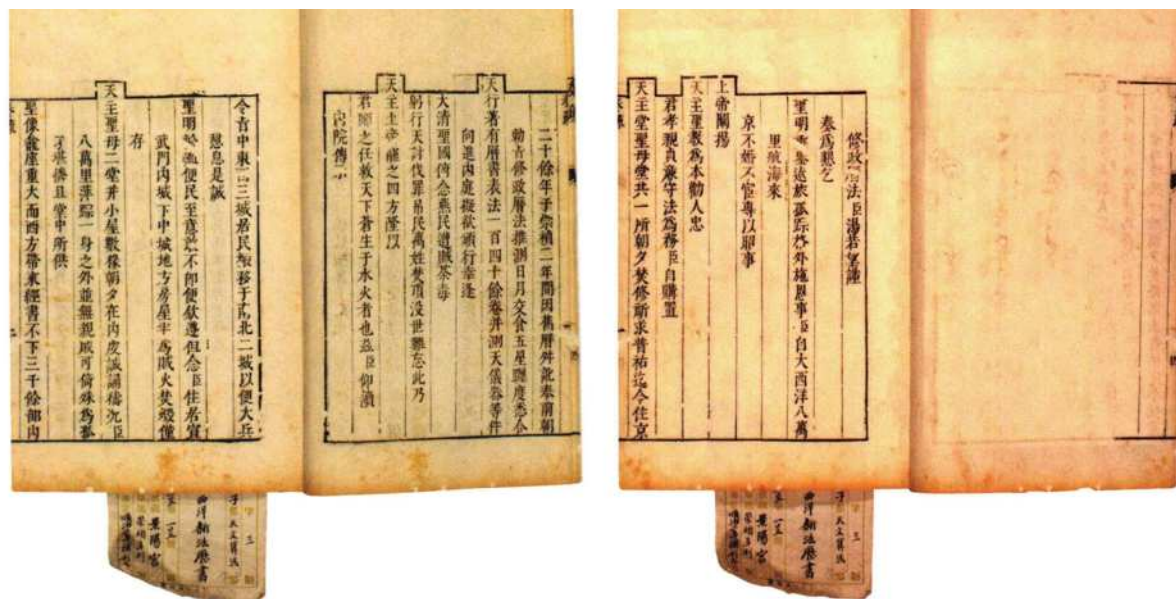 修政曆法臣湯若望謹
奏為懇乞
聖明垂鑒遠旅孤踪格外施恩事臣自大西洋八萬
里航海來
京不婚不宦專以昭事
上帝闡揚
天主聖教為本勸人忠
君孝親貞廉守法為務臣自購置
天主堂聖母堂共一所朝夕焚修祈求普祐迄今住京
三
子 天文算法
西洋新法曆書
景陽宮
二十餘年于崇禎二年間因舊曆舛訛奉前朝
勅旨修政曆法推測日月交食五星躔度悉合
天行著有曆書表法一百四十餘卷并測天儀器等件
向進內庭擬欲頒行幸逢
大清聖國俯念燕民遭賊荼毒
躬行天討伐罪吊民萬姓焚頂沒世難忘此乃
天主上帝寵之四方降以
君師之任救天下蒼生于水火者也茲臣仰瀆
內院傳示
令旨中東西三城居民搬移于南北二城以便大兵
憇息是誠
聖明軫恤便民至意敢不即便欽遵但念臣住居宣
武門內城下中城地方房屋半為賊火焚燬僅
存
天主聖母二堂并小屋數椽朝夕在內虔誠誦禱況臣
八萬里萍踪一身之外並無親戚可倚殊為孤
孑煢僑且堂中所供
聖像龕座重大而西方帶來經書不下三千餘部內
三
子 天文算法
西洋新法曆書
景陽宮